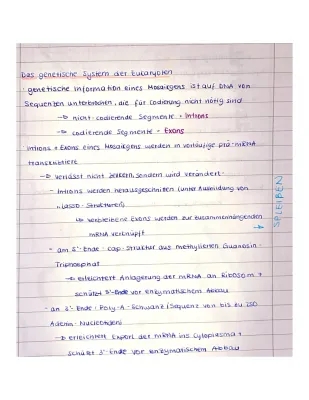 Das genetische System der Eucaryoten
· genetische Information eines Mosaikgens ist auf DNA von
Sequenzen unterbrochen, die für Codierung nicht nötig sind
→ nicht-codierende Segmente = Introns
→ codierende Segmente = Exons
Introns + Exons eines Mosaikgens werden in vorläufige prä-mRNA
transkribiert
→ verlässt nicht Zellkern, sondern wird verändert:
- Introns werden herausgeschnitten (unter Ausbildung von
"Lasso"-Strukturen)
↳ verbleibene Exons werden zur zusammenhängenden
mRNA verknüpft
→ SPLEIßEN
- am 5'-Ende: Cap-Struktur aus methylierten Guanosin-
Triphosphat
→ erleichtert Anlagerung der mRNA an Ribosom +
schützt 5'-Ende vor enzymatischem Abbau
- an 3'-Ende: Poly-A-Schwanz (Sequenz von bis zu 250
Adenin-Nucleotiden)
→ erleichtert Export der mRNA ins Cytoplasma +
schützt 3'-Ende vor enzymatischem Abbau